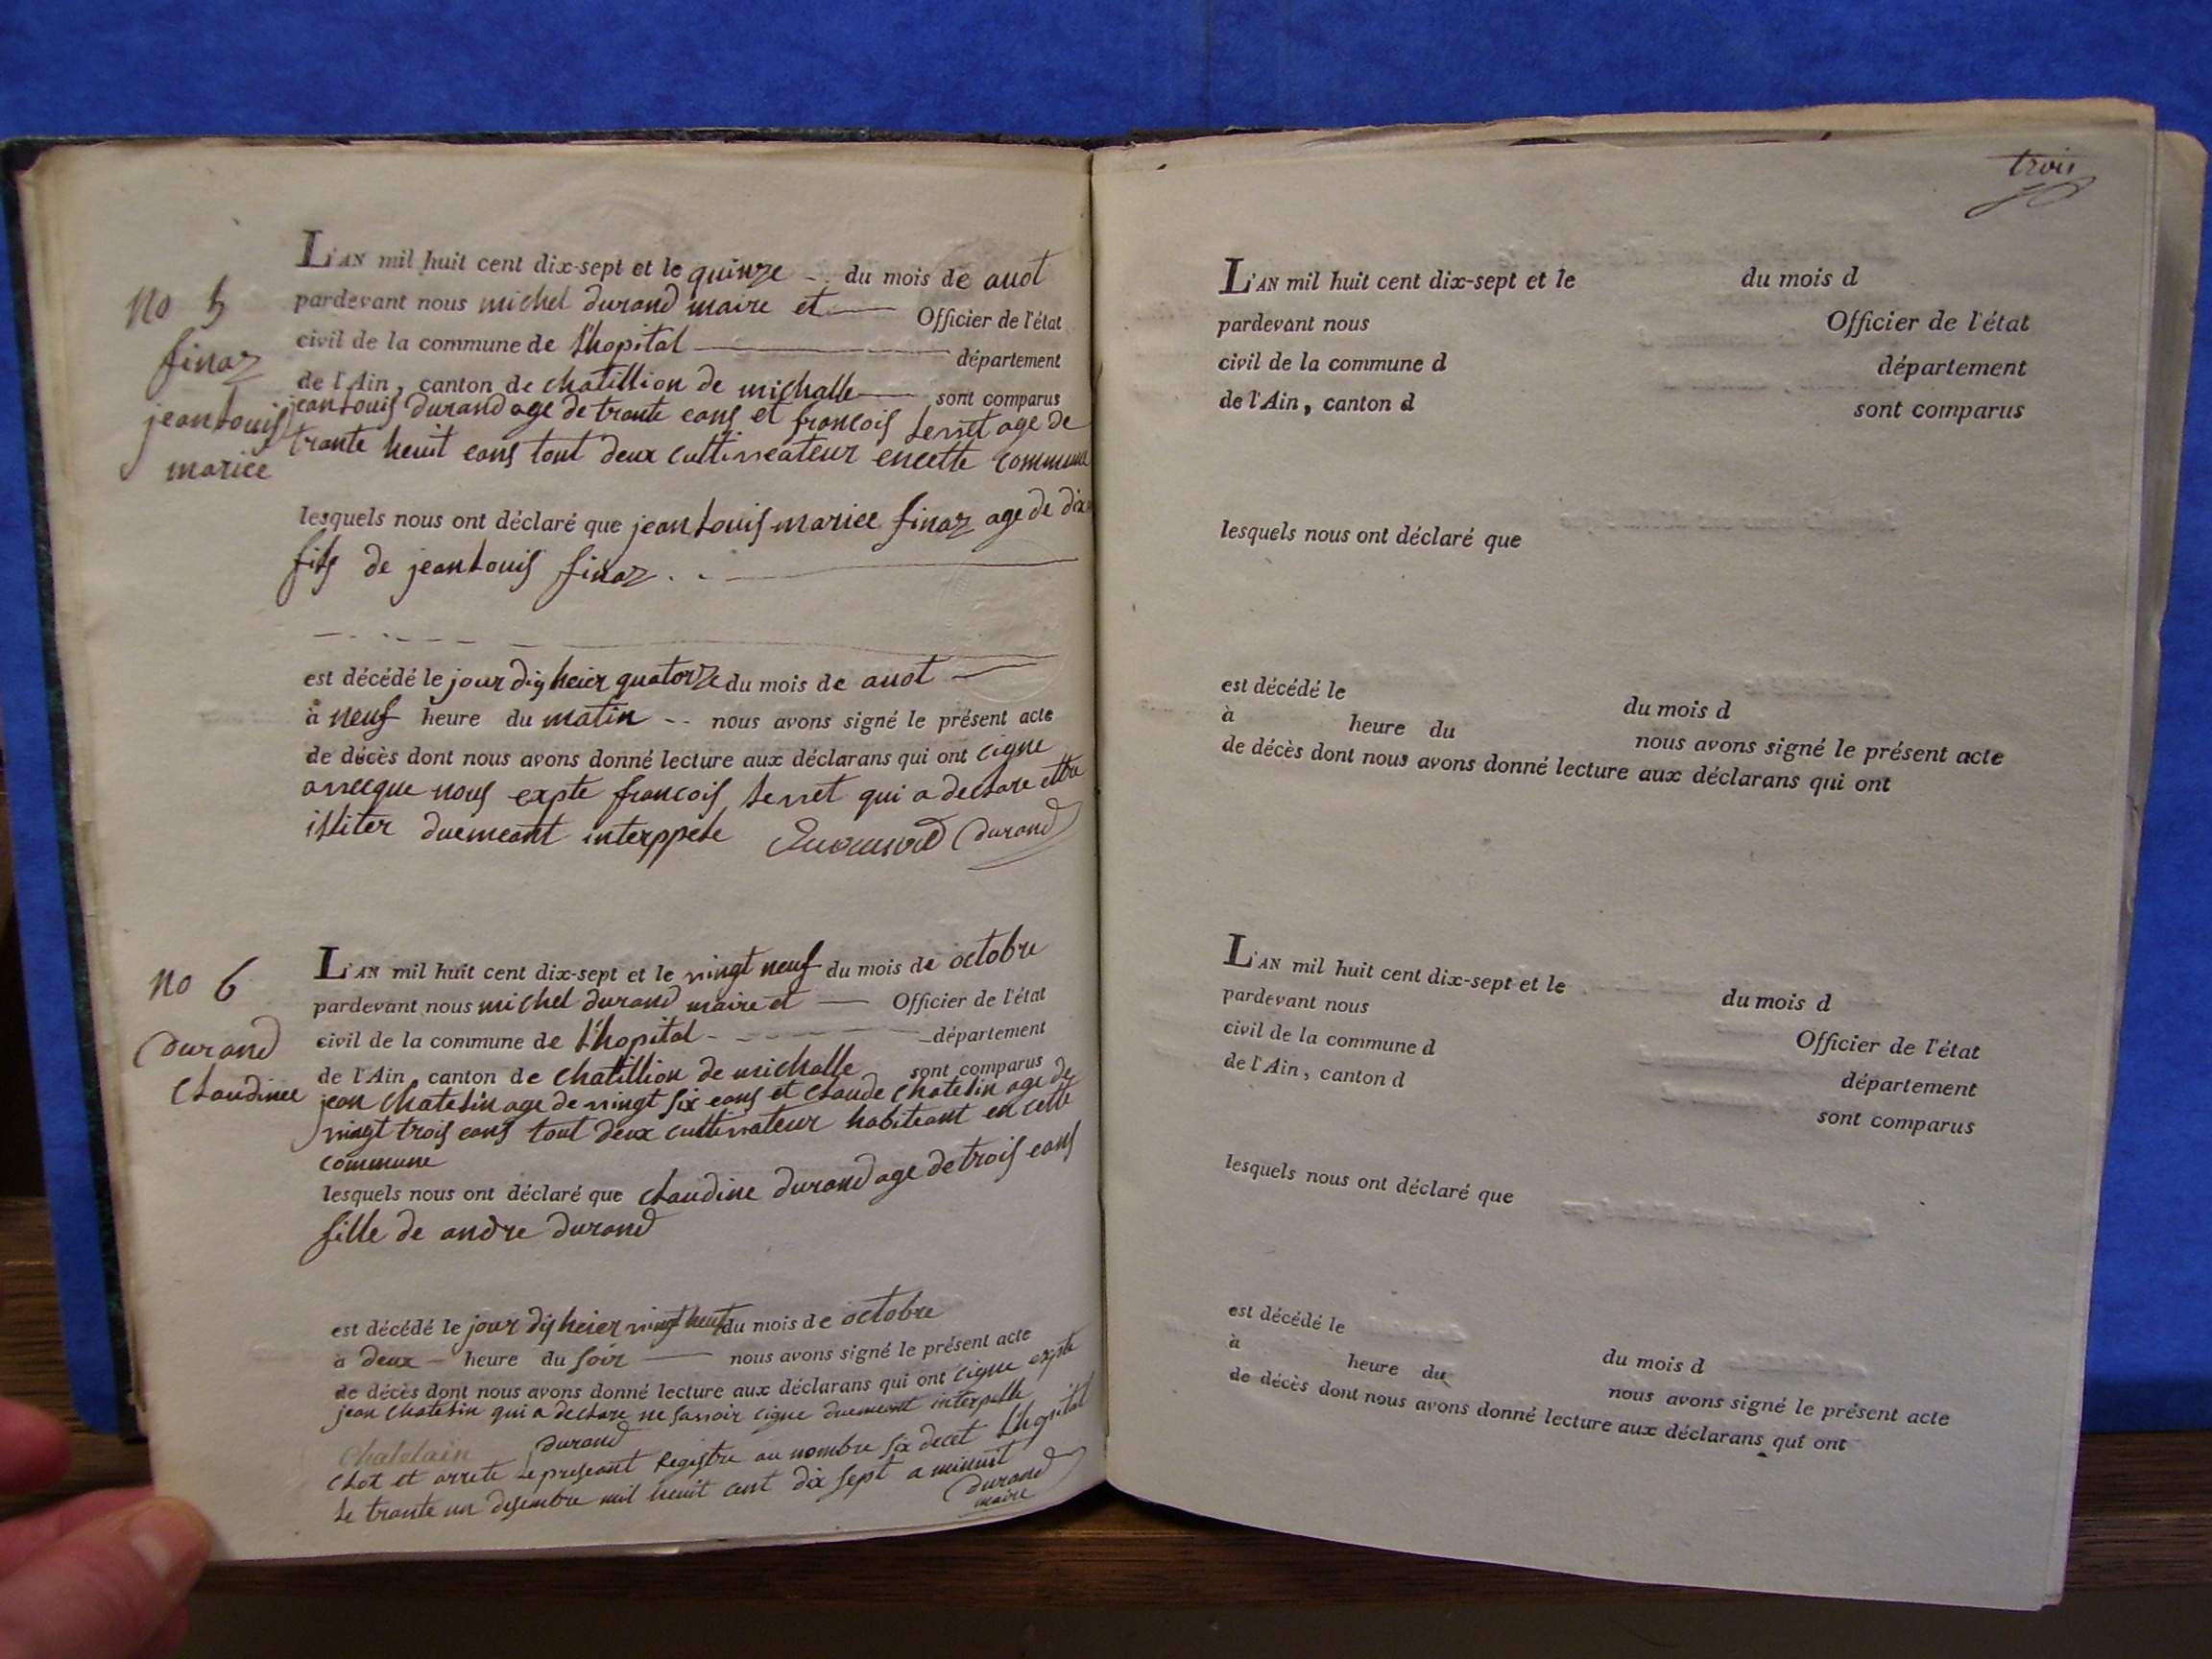 no 5
finaz
jean Louis
mariee
L'AN mil huit cent dix-sept et le quinze -- du mois de auot
pardevant nous michel durand maire et — Officier de l'état
civil de la commune de L'hopital — département
de l'Ain, canton de chatillion de michalle — sont comparus
jean Louis durand age de trante eans et francois Serret age de
trante heuit eans tout deux cultiveateur encette commune
lesquels nous ont déclaré que jean Louis mariee finaz age de dix
fils de jean Louis finaz . . —
est décédé le jour dig heier quatorze du mois de auot —
à neuf heure du matin -- nous avons signé le présent acte
de décès dont nous avons donné lecture aux déclarans qui ont cigne
avecque nous expte francois Serret qui a declare ettre
isliter duemeant interppele durand
no 6
durand
Claudinee
L'AN mil huit cent dix-sept et le vingt neuf du mois de octobre
pardevant nous michel durand maire et — Officier de l'état
civil de la commune de L'hopital - - - - - département
de l'Ain, canton de chatillion de michalle sont comparus
jean Chatelin age de vingt six eans et Claude Chatelin age de
vingt trois eans tout deux cultivateur habiteant en cette
commune
lesquels nous ont déclaré que Claudine durand age de trois eans
fille de andre durand
est décédé le jour dig heier vingt heut du mois de octobre
à deux — heure du soir — nous avons signé le présent acte
de décès dont nous avons donné lecture aux déclarans qui ont cigne expte
jean Chatelin qui a declare ne savoir cigne duemeant interpelle
Chatelain durand
Clot et arrete Le preseant Registre au nombre six decet L'hopital
Le trante un desembre mil heuit cent dix sept a minuit
durand
maire
trois
L'AN mil huit cent dix-sept et le du mois d
pardevant nous Officier de l'état
civil de la commune d département
de l'Ain, canton d sont comparus
lesquels nous ont déclaré que
est décédé le du mois d
à heure du nous avons signé le présent acte
de décès dont nous avons donné lecture aux déclarans qui ont
L'AN mil huit cent dix-sept et le du mois d
pardevant nous Officier de l'état
civil de la commune d département
de l'Ain, canton d sont comparus
lesquels nous ont déclaré que
est décédé le du mois d
à heure du nous avons signé le présent acte
de décès dont nous avons donné lecture aux déclarans qui ont